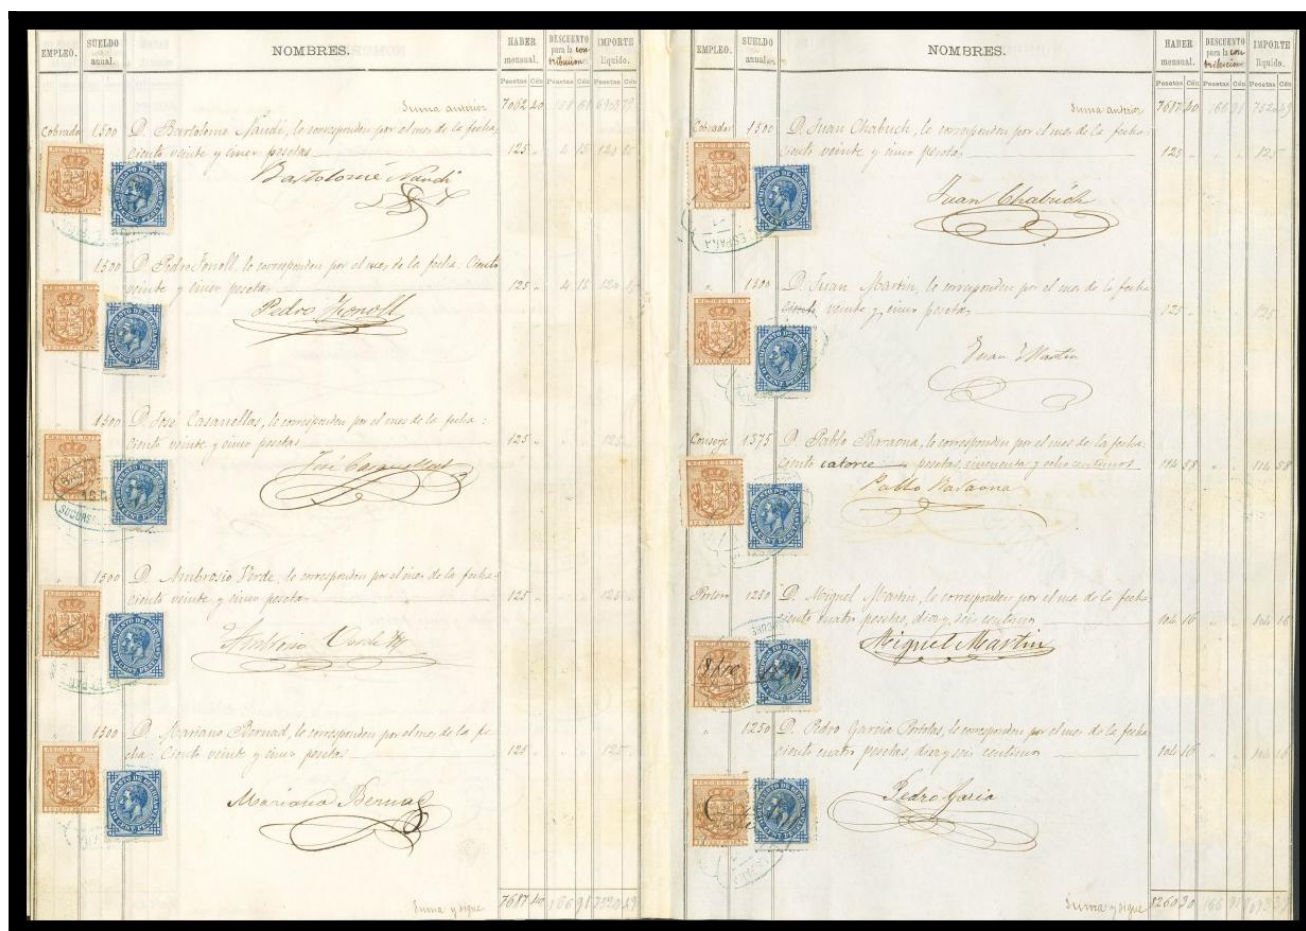 EMPLEO. SUELDO anual. NOMBRES. HABER mensual. DESCUENTO para la contribucion IMPORTE líquido.
Pesetas Cén Pesetas Cén Pesetas Cén
Suma anterior 7062 40
Cobrador 1500 D. Bartolome Naudi, le corresponden por el mes de la fecha:
ciento veinte y cinco pesetas 125 - 4 15 120 85
Bartolomé Naudi
" 1500 D. Pedro Fonoll, le corresponden por el mes de la fecha: Ciento
veinte y cinco pesetas 125 - 4 15 120 85
Pedro Fonoll
1500 D. José Casanellas, le corresponden por el mes de la fecha:
ciento veinte y cinco pesetas 125 - 125 -
José Casanellas
" 1500 D. Ambrosio Verde, le corresponden por el mes de la fecha:
ciento veinte y cinco pesetas 125 - 125 -
Ambrosio Verde
" 1500 D. Mariano Bernad, le corresponden por el mes de la fe
cha: Ciento veinte y cinco pesetas 125 - 125 -
Mariano Bernad
Suma y sigue 7687 40 166 91 7520 49
EMPLEO. SUELDO anual. NOMBRES. HABER mensual. DESCUENTO para la contribucion IMPORTE líquido.
Pesetas Cén Pesetas Cén Pesetas Cén
Suma anterior 7687 40 166 91 7520 49
Cobrador 1500 D. Juan Chabuch, le corresponden por el mes de la fecha:
ciento veinte y cinco pesetas 125 - - - 125 -
Juan Chabuch
" 1500 D. Juan Martin, le corresponden por el mes de la fecha
ciento veinte y cinco pesetas 125 - 125 -
Juan Martin
Conserje 1375 D. Pablo Baraona, le corresponden por el mes de la fecha:
ciento catorce pesetas, cincuenta y ocho centimos 114 58 - - 114 58
Pablo Baraona
Portero 1250 D. Miguel Martin, le corresponden por el mes de la fecha
ciento cuatro pesetas, diez y seis centimos 104 16 104 16
Miguel Martin
" 1250 D. Pedro Garcia, le corresponden por el mes de la fecha
ciento cuatro pesetas diez y seis centimos 104 16 104 16
Pedro Garcia
Suma y sigue 8260 30 166 91